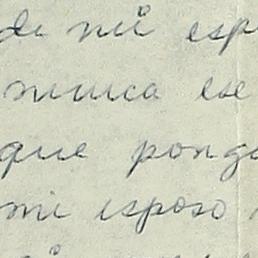 de mi esp
nunca ese
que ponga
mi esposo